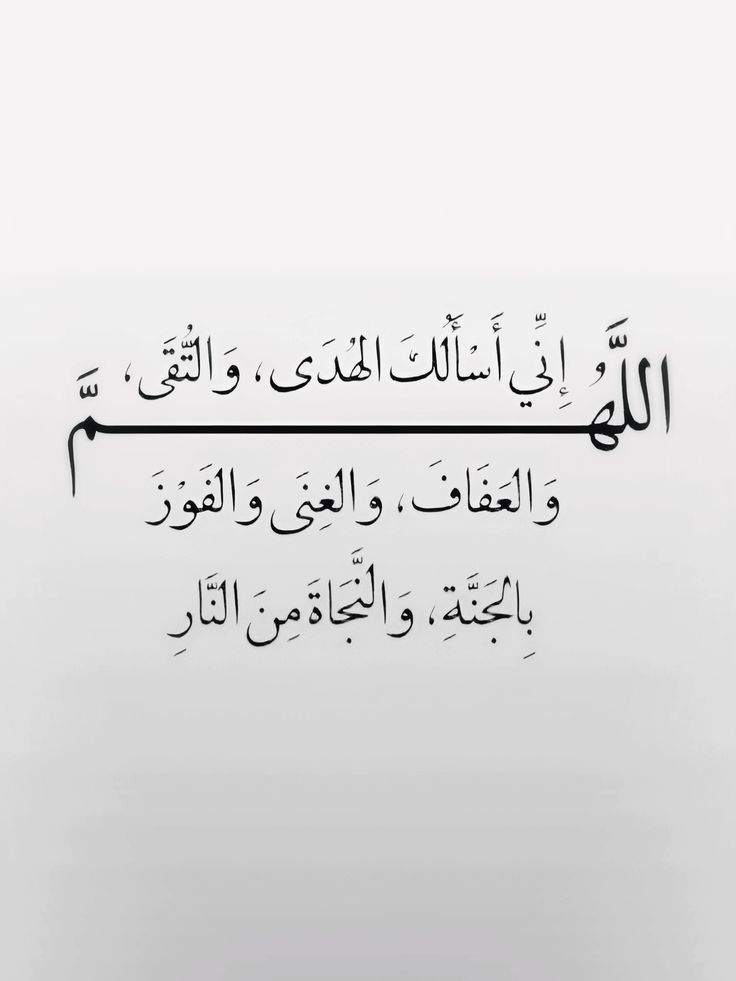 اللَّهُمَّ إِنِّي أَسْأَلُكَ الهُدَى، وَالتُّقَى،
وَالعَفَافَ، وَالغِنَى وَالفَوْزَ
بِالجَنَّةِ، وَالنَّجَاةَ مِنَ النَّارِ